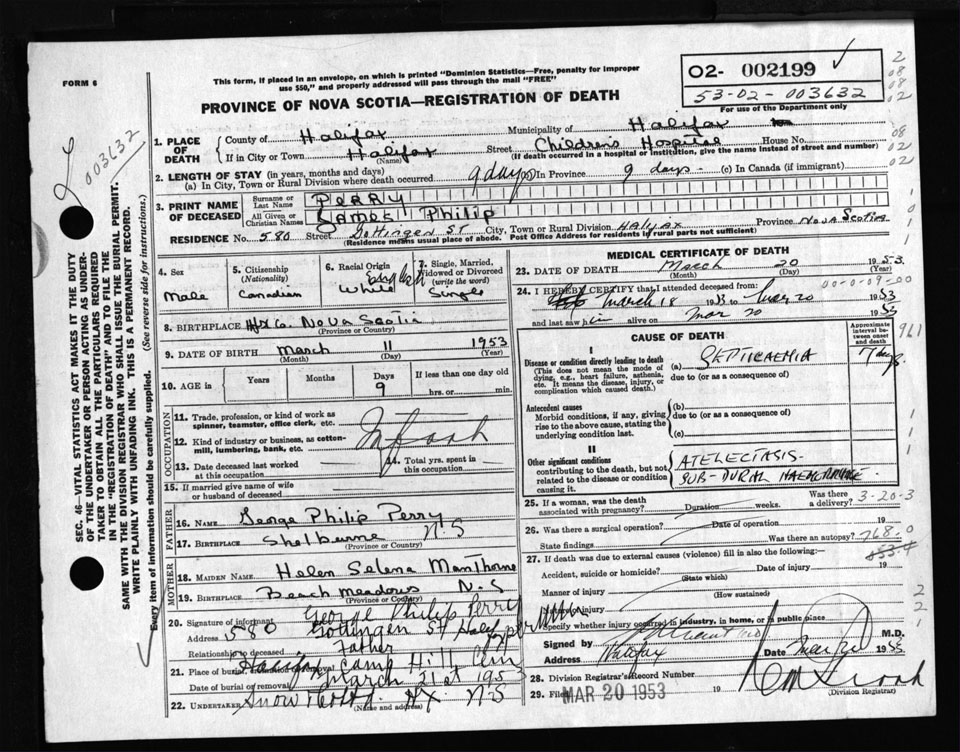 FORM 6
This form, if placed in an envelope, on which is printed "Dominion Statistics—Free, penalty for improper
use $50," and properly addressed will pass through the mail "FREE"
O2- 002199
53-02-003632
For use of the Department only
PROVINCE OF NOVA SCOTIA—REGISTRATION OF DEATH
003632
SEC. 46—VITAL STATISTICS ACT MAKES IT THE DUTY
OF THE UNDERTAKER OR PERSON ACTING AS UNDER-
TAKER TO OBTAIN ALL THE PARTICULARS REQUIRED
IN THE "REGISTRATION OF DEATH" AND TO FILE THE
SAME WITH THE DIVISION REGISTRAR WHO SHALL ISSUE THE BURIAL PERMIT.
WRITE PLAINLY WITH UNFADING INK. THIS IS A PERMANENT RECORD.
Every item of information should be carefully supplied. (See reverse side for instructions.)
1. PLACE OF DEATH
County of Halifax Municipality of Halifax
If in City or Town Halifax (Name) Street Children's Hospital House No.
(If death occurred in a hospital or institution, give the name instead of street and number)
2. LENGTH OF STAY (in years, months and days)
(a) In City, Town or Rural Division where death occurred 9 days (b) In Province 9 days (c) In Canada (if immigrant)
3. PRINT NAME OF DECEASED
Surname or Last Name PERRY
All Given or Christian Names James Philip
RESIDENCE No. 580 Street Gottingen St City, Town or Rural Division Halifax Province Nova Scotia
(Residence means usual place of abode. Post Office Address for residents in rural parts not sufficient)
4. Sex
Male
5. Citizenship (Nationality)
Canadian
6. Racial Origin
English
White
7. Single, Married, Widowed or Divorced (write the word)
Single
8. BIRTHPLACE Hfx Co. Nova Scotia
(Province or Country)
9. DATE OF BIRTH March 11 1953
(Month) (Day) (Year)
10. AGE in
Years
Months
Days
9
If less than one day old
hrs. or min.
OCCUPATION
11. Trade, profession, or kind of work as
spinner, teamster, office clerk, etc.
12. Kind of industry or business, as cotten-
mill, lumbering, bank, etc.
Infant
13. Date deceased last worked
at this occupation
14. Total yrs. spent in
this occupation
15. If married give name of wife
or husband of deceased
FATHER
16. NAME George Philip Perry
17. BIRTHPLACE Shelburne N.S
(Province or Country)
MOTHER
18. MAIDEN NAME Helen Selena Manthorne
19. BIRTHPLACE Beach Meadows N-S
(Province or Country)
20. Signature of informant George Philip Perry
Address 580 Gottingen St Halifax
Relationship to deceased Father
21. Place of burial, cremation or removal Halifax Camp Hill Cem
Date of burial or removal March 21st 1953
22. UNDERTAKER Snow & Co Ltd. Hx N-S
(Name and address)
MEDICAL CERTIFICATE OF DEATH
23. DATE OF DEATH March 20 1953
(Month) (Day) (Year)
24. I HEREBY CERTIFY that I attended deceased from:
March 18 1953 to Mar 20 1953
and last saw him alive on Mar 20 1953
CAUSE OF DEATH
Approximate interval between onset and death
I
Disease or condition directly leading to death
(This does not mean the mode of
dying, e.g., heart failure, asthma,
etc. It means the disease, injury, or
complication which caused death.)
(a) SEPTICAEMIA 7 days
due to (or as a consequence of)
Antecedent causes
Morbid conditions, if any, giving
rise to the above cause, stating the
underlying condition last.
(b)
due to (or as a consequence of)
(c)
II
Other significant conditions
contributing to the death, but not
related to the disease or condition
causing it.
ATELECTASIS.
SUB-DURAL HAEMORRHAGE
25. If a woman, was the death
associated with pregnancy? Duration weeks. Was there a delivery?
3-20-3
26. Was there a surgical operation? Date of operation 19
State findings Was there an autopsy?
768.0
27. If death was due to external causes (violence) fill in also the following:—
Accident, suicide or homicide? Date of injury 19
(State which)
Manner of injury
(How sustained)
Nature of injury
Specify whether injury occurred in industry, in home, or in public place
Signed by M.D.
Address Halifax Date 1953
28. Division Registrar's Record Number
29. Filed MAR 20 1953
(Division Registrar)